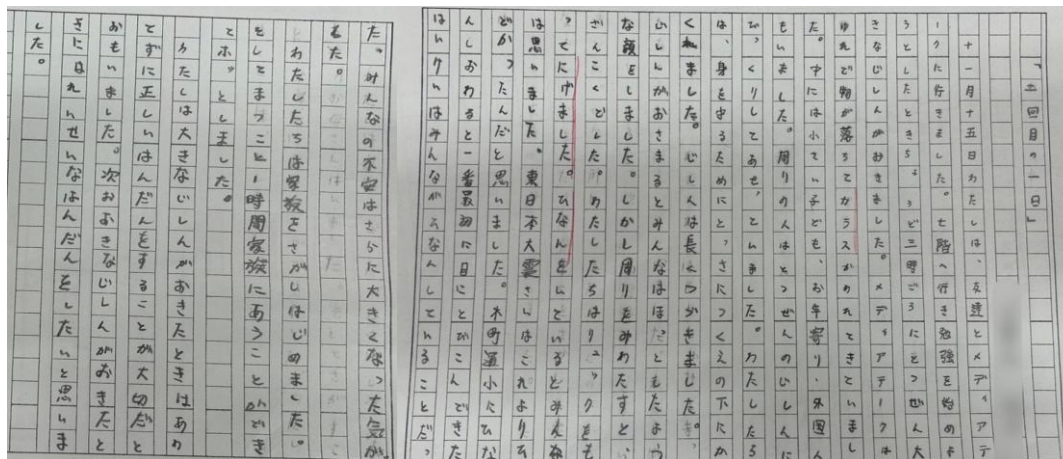 「土回目の一日」
十一月十五日わたしは、友達とメディアテ
ークに行きました。七階へ行き勉強を始めよ
うとしたときちょうど三時ごろにとつぜん大
きなじしんがおきました。メディアテークは大
ゆれで物が落ちてガラスがわれてきていまし
た。中には小さい子ども、お年寄り、外国人
もいました。周りの人はとつぜんのじしんに
びっくりしてあせっていました。わたしたち
は、身を守るためにとっさにつくえの下にか
くれました。じしんは長くつづきました。
じしんがおさまるとみんなはほっとしたよう
な顔をしました。しかし周りをみわたすと、
ざんこくでした。わたしたちはリュックをも
ってにげました。ひなんをしているとみんな
は思いました。東日本大震さいはこれよりひ
どかったんだと思いました。木町通小にひな
んしおわると一番最初に目にとびこんできた
はいけいはみんながひなんしていることだっ
た。みんなの不安はさらに大きくなった気が
した。
わたしたちは家族をさがしはじめました。
をしてまつこと1時間家族にあうことができ
てホッとしました。
わたしは大きなじしんがおきたときはあわ
てずに正しいはんだんをすることが大切だと
おもいました。次おおきなじしんがおきたと
きにはれいせいなはんだんをしたいと思いま
した。